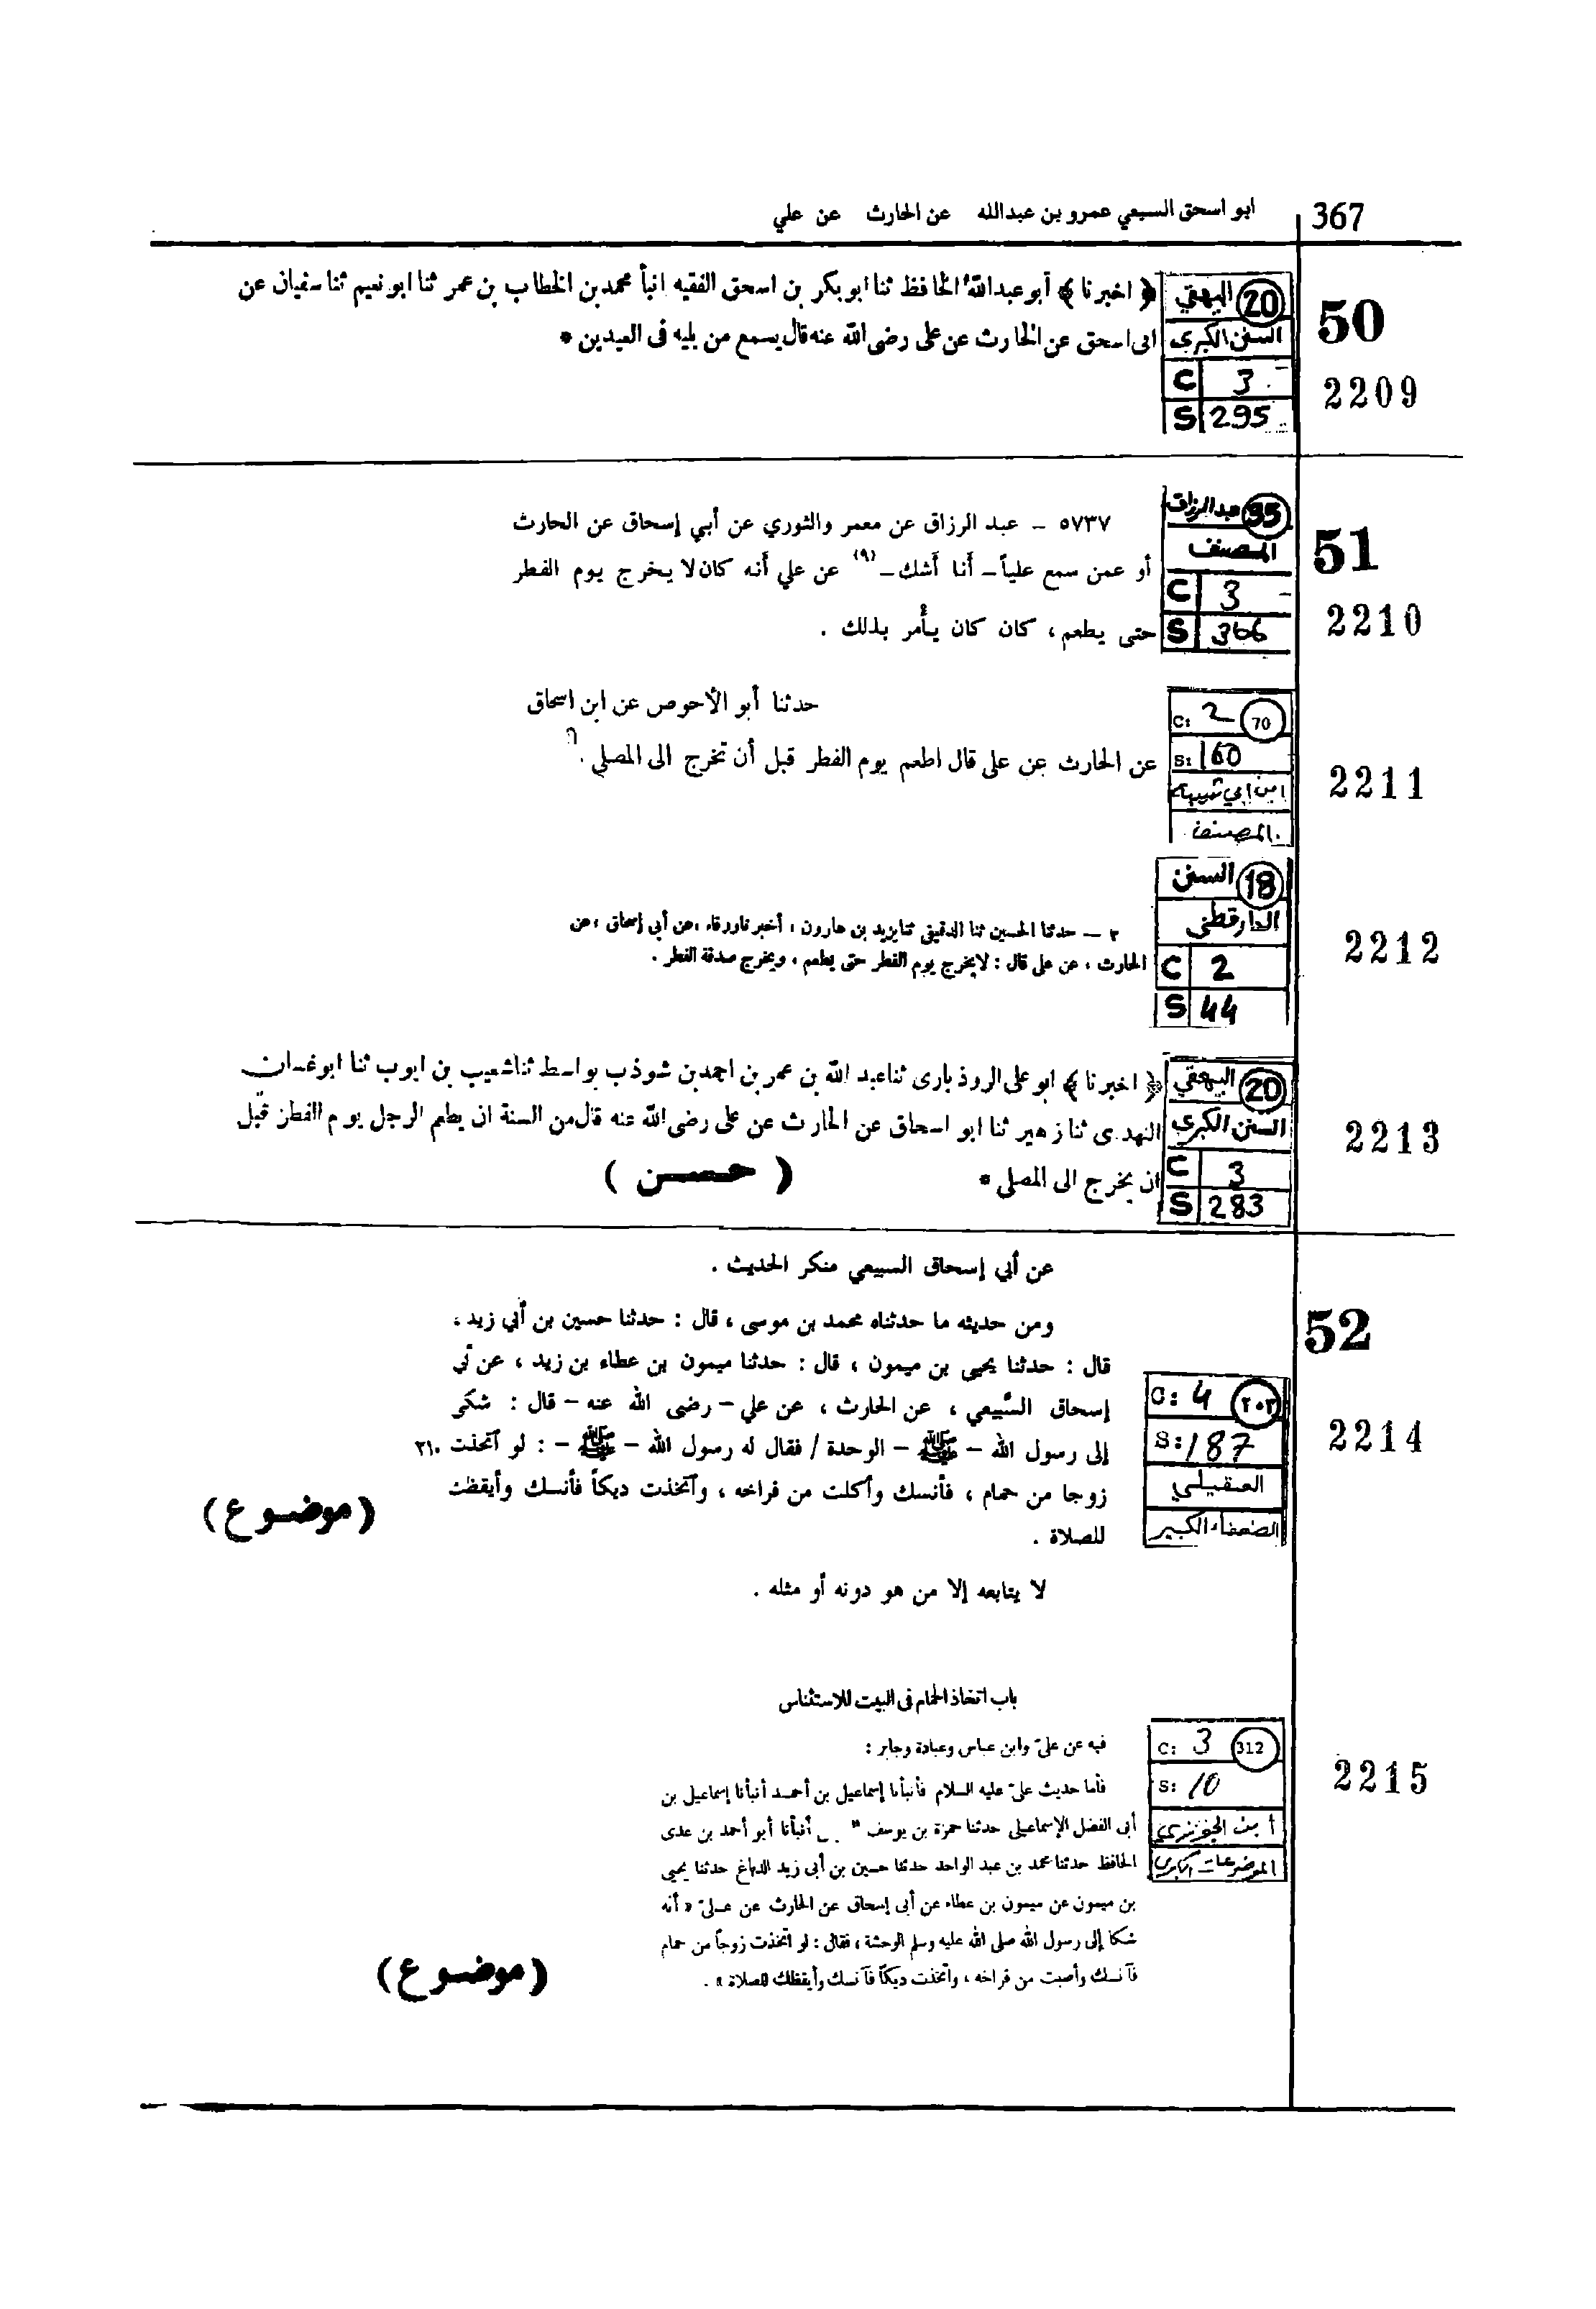 367
ابو اسحق السبيعي عمرو بن عبدالله عن الحارث عن علي
50
2209
20 البيهقي
السنن الكبرى
C 3
S 295
﴿ اخبرنا ﴾ أبو عبدالله الحافظ ثنا ابو بكر بن اسحق الفقيه انبأ محمد بن الخطاب بن عمر ثنا ابو نعيم ثنا سفيان عن
ابى اسحق عن الحارث عن على رضى الله عنه قال يسمع من يليه فى العيدين *
51
2210
35 عبد الرزاق
المصنف
C 3
S 366
٥٧٣٧ – عبد الرزاق عن معمر والثوري عن أبي إسحاق عن الحارث
أو عمن سمع علياً – أنا أشك – (٩) عن علي أنه كان لا يخرج يوم الفطر
حتى يطعم ، كان كان يأمر بذلك .
2211
C: 2 70
S: 160
ابن ابي شيبة
المصنف
حدثنا أبو الأحوص عن ابن اسحاق
عن الحارث عن على قال اطعم يوم الفطر قبل أن تخرج الى المصلي .
2212
18 السنن
الدارقطني
C 2
S 44
٣ – حدثنا الحسين ثنا الدقيقي ثنا يزيد بن هارون ، أخبرنا ورقاء ، عن أبي إسحاق ، عن
الحارث ، عن على قال : لا يخرج يوم الفطر حتى يطعم ، ويخرج صدقة الفطر .
2213
20 البيهقي
السنن الكبرى
C 3
S 283
﴿ اخبرنا ﴾ ابو على الروذبارى ثنا عبد الله بن عمر بن احمد بن شوذب بواسط ثنا شعيب بن ايوب ثنا ابو غسان
النهدى ثنا زهير ثنا ابو اسحاق عن الحارث عن على رضى الله عنه قال من السنة ان يطعم الرجل يوم الفطر قبل
ان يخرج الى المصلى *
( حسن )
52
عن أبي إسحاق السبيعي منكر الحديث .
ومن حديثه ما حدثناه محمد بن موسى ، قال : حدثنا حسين بن أبي زيد ،
2214
C: 4 ٢٠٣
S: 187
العقيلي
الضعفاء الكبير
قال : حدثنا يحيى بن ميمون ، قال : حدثنا ميمون بن عطاء بن زيد ، عن أبي
إسحاق السَّبيعي ، عن الحارث ، عن علي – رضى الله عنه – قال : شكى
إلى رسول الله – ﷺ – الوحدة / فقال له رسول الله – ﷺ – : لو اتخذت ٢١٠
زوجا من حمام ، فأنسك وأكلت من فراخه ، واتخذت ديكاً فأنسك وأيقظك
للصلاة .
(موضوع)
لا يتابعه إلا من هو دونه أو مثله .
باب اتخاذ الحمام فى البيت للاستئناس
2215
C: 3 312
S: 10
ابن الجوزي
الموضوعات الكبرى
فيه عن علىّ وابن عباس وعبادة وجابر :
فأما حديث علىّ عليه السلام فأنبأنا إسماعيل بن أحمد أنبأنا إسماعيل بن
أبى الفضل الإسماعيلى حدثنا حمزة بن يوسف أنبأنا أبو أحمد بن عدى
الحافظ حدثنا محمد بن عبد الواحد حدثنا حسين بن أبى زيد الدباغ حدثنا يحيى
بن ميمون عن ميمون بن عطاء عن أبى إسحاق عن الحارث عن علىّ « أنه
شكا إلى رسول الله صلى الله عليه وسلم الوحشة ، فقال : لو اتخذت زوجاً من حمام
فآنسك وأصبت من فراخه ، واتخذت ديكاً فآنسك وأيقظك للصلاة » .
(موضوع)